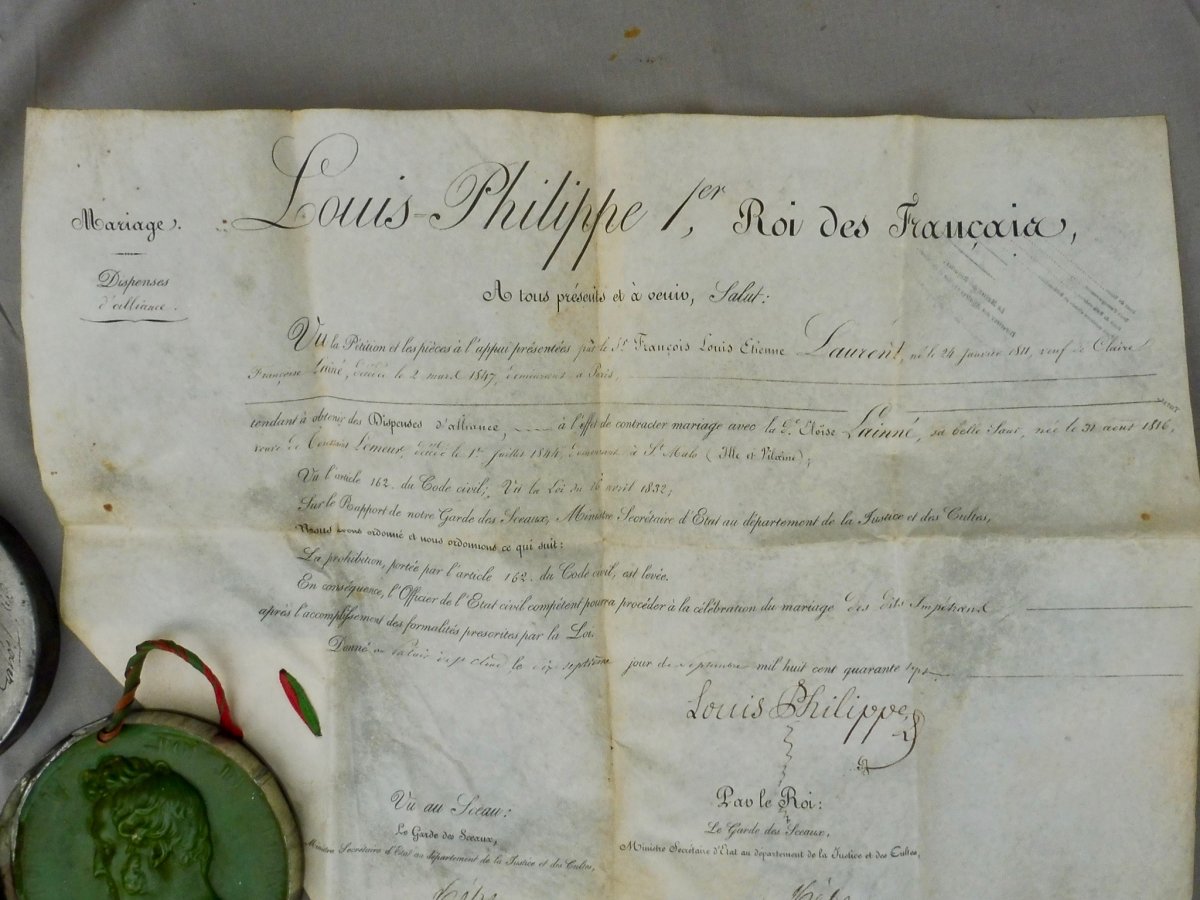 Mariage.
Dispenses
d'alliance.
Louis-Philippe 1er, Roi des Français,
A tous présents et à venir, Salut:
Vu la Pétition et les pièces à l'appui présentées par le Sr François Louis Etienne Laurent, né le 24 janvier 1811, veuf de Claire
Françoise Lainé, décédée le 2 mars 1847, demeurant à Paris,
tendant à obtenir des Dispenses d'alliance, à l'effet de contracter mariage avec la De Eloïse Lainné, sa belle Sœur, née le 31 août 1816,
veuve de Lemeur, décédé le 1er Juillet 1844, demeurant à St Malo (Ille et Vilaine);
Vu l'article 162. du Code civil; Vu la Loi du 16 avril 1832;
Sur le Rapport de notre Garde des Sceaux, Ministre Secrétaire d'Etat au département de la Justice et des Cultes,
Nous avons ordonné et nous ordonnons ce qui suit:
La prohibition, portée par l'article 162. du Code civil, est levée.
En conséquence, l'Officier de l'Etat civil compétent pourra procéder à la célébration du mariage des dits Impétrans
après l'accomplissement des formalités prescrites par la Loi.
Donné au palais de St Cloud le dix septième jour de septembre mil huit cent quarante sept.
Louis Philippe
Vu au Sceau:
Le Garde des Sceaux,
Ministre Secrétaire d'Etat au département de la Justice et des Cultes,
Par le Roi:
Le Garde des Sceaux,
Ministre Secrétaire d'Etat au département de la Justice et des Cultes,